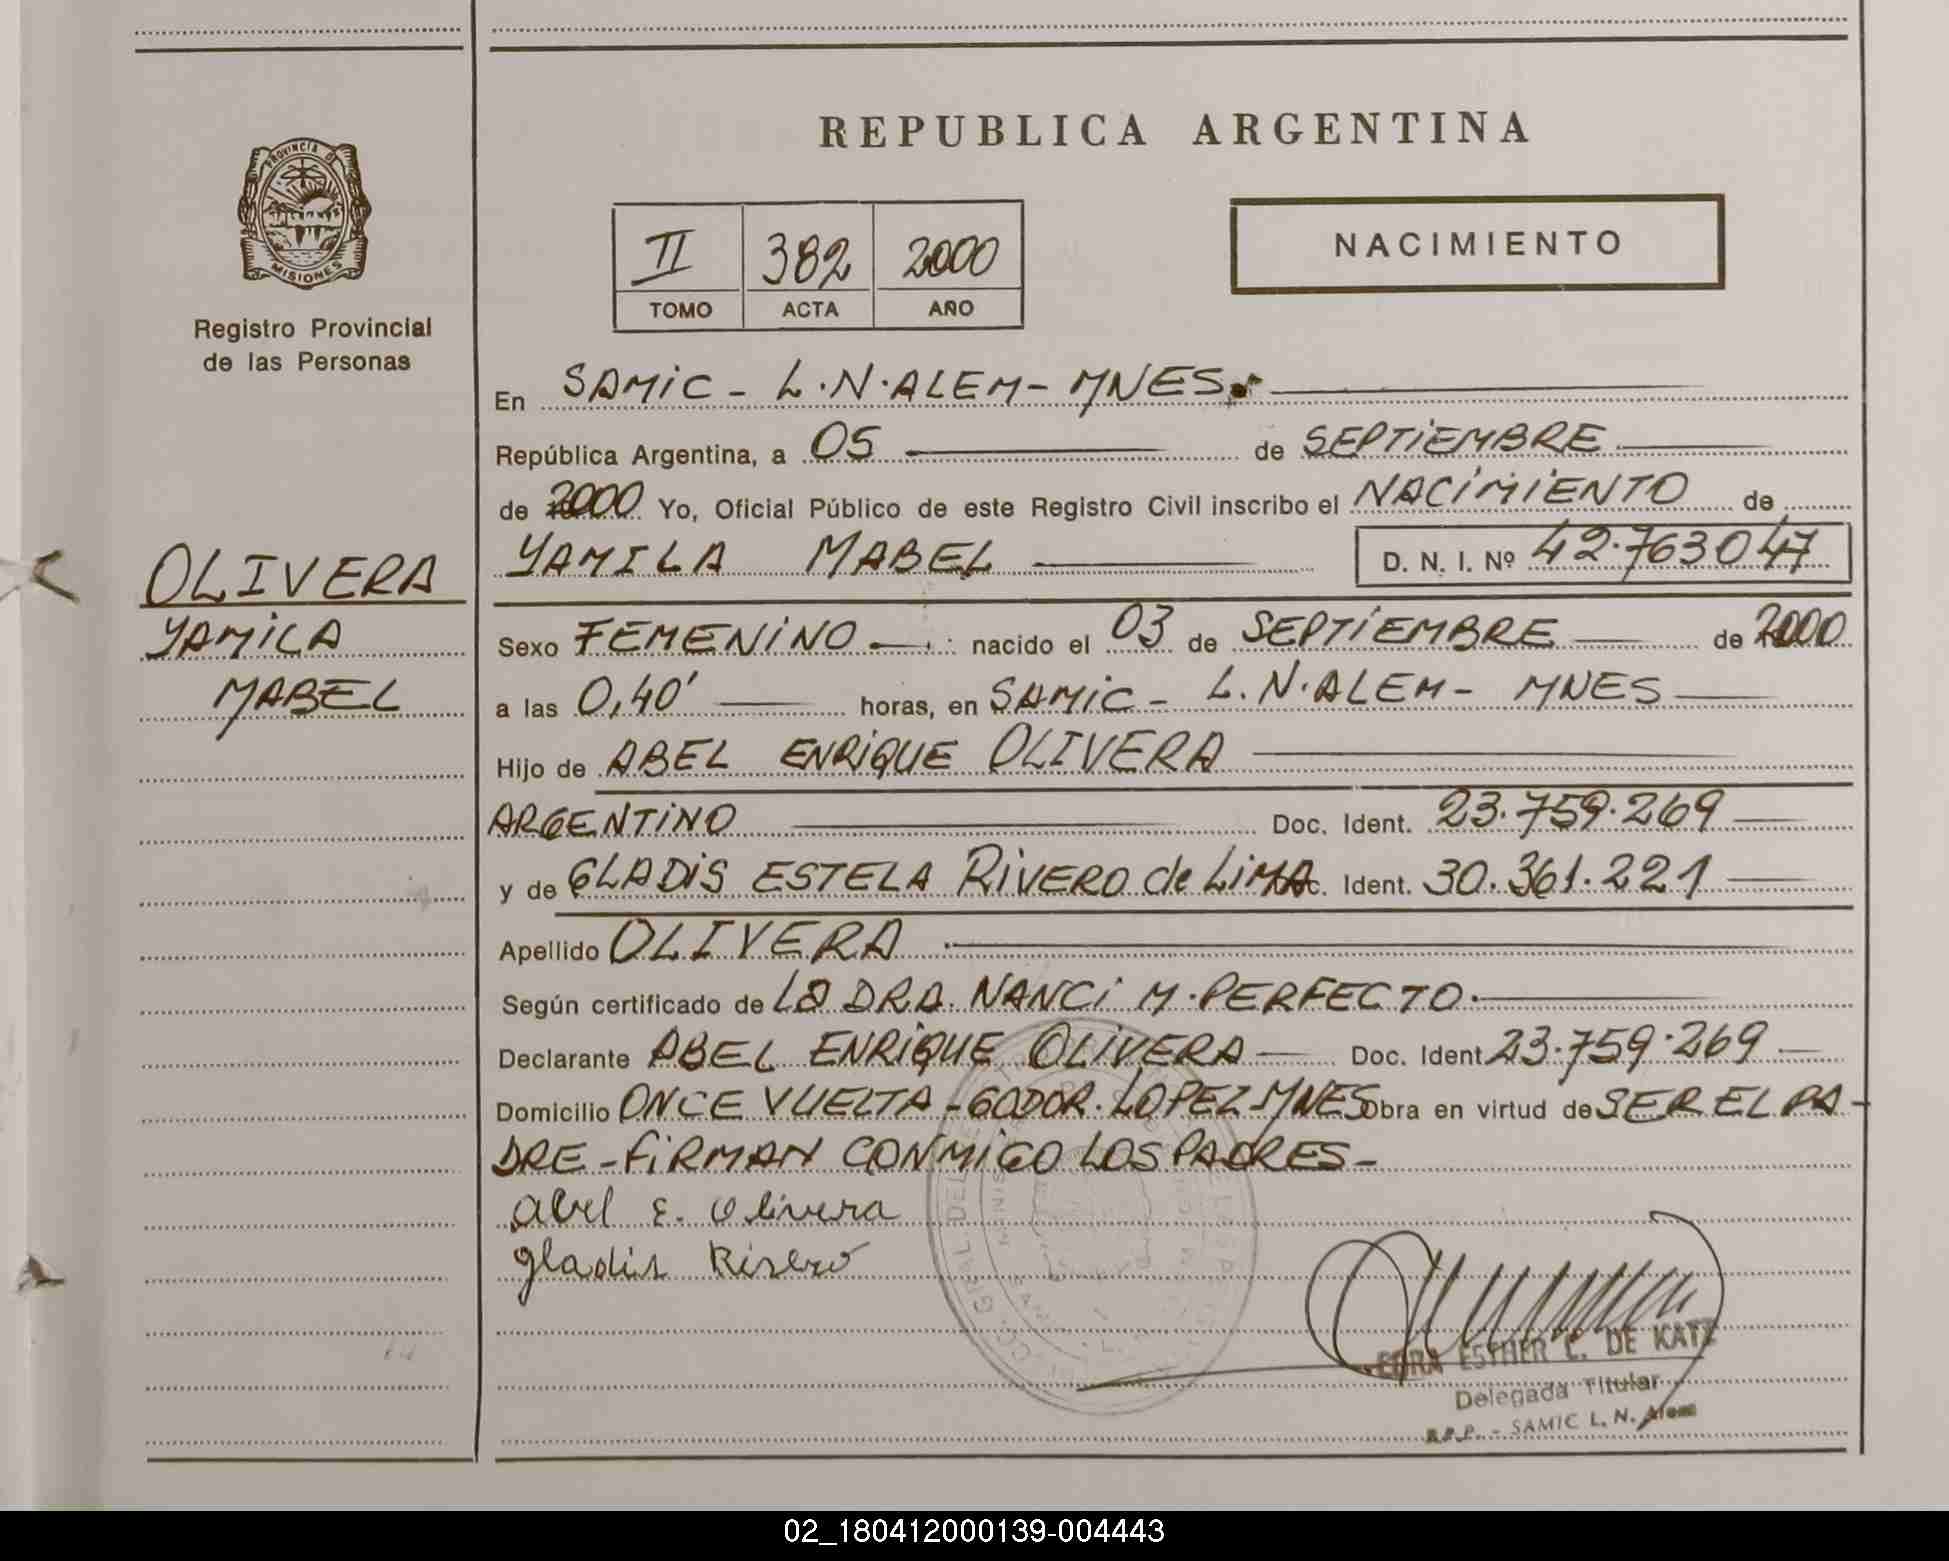 REPUBLICA ARGENTINA
PROVINCIA D
MISIONES
Registro Provincial
de las Personas
II 382 2000
TOMO ACTA AÑO
NACIMIENTO
En SAMIC - L.N.ALEM - MNES.
República Argentina, a 05 de SEPTIEMBRE
de 2000 Yo, Oficial Público de este Registro Civil inscribo el NACIMIENTO de
YAMILA MABEL D. N. I. Nº 42.763047
OLIVERA
YAMILA
MABEL
Sexo FEMENINO nacido el 03 de SEPTIEMBRE de 2000
a las 0,40' horas, en SAMIC - L.N.ALEM - MNES
Hijo de ABEL ENRIQUE OLIVERA
ARGENTINO Doc. Ident. 23.759.269
y de GLADIS ESTELA RIVERO de LIMA Doc. Ident. 30.361.221
Apellido OLIVERA
Según certificado de LA DRA. NANCI M. PERFECTO.
Declarante ABEL ENRIQUE OLIVERA Doc. Ident 23.759.269
Domicilio ONCE VUELTA - GODOR. LOPEZ - MNES Obra en virtud de SER EL PA-
DRE - FIRMAN CONMIGO LOS PADRES -
Abel E. Olivera
Gladis Rivero
ESTHER C. DE KATZ
Delegada Titular
R.P.P. - SAMIC L. N. Alem
02_180412000139-004443